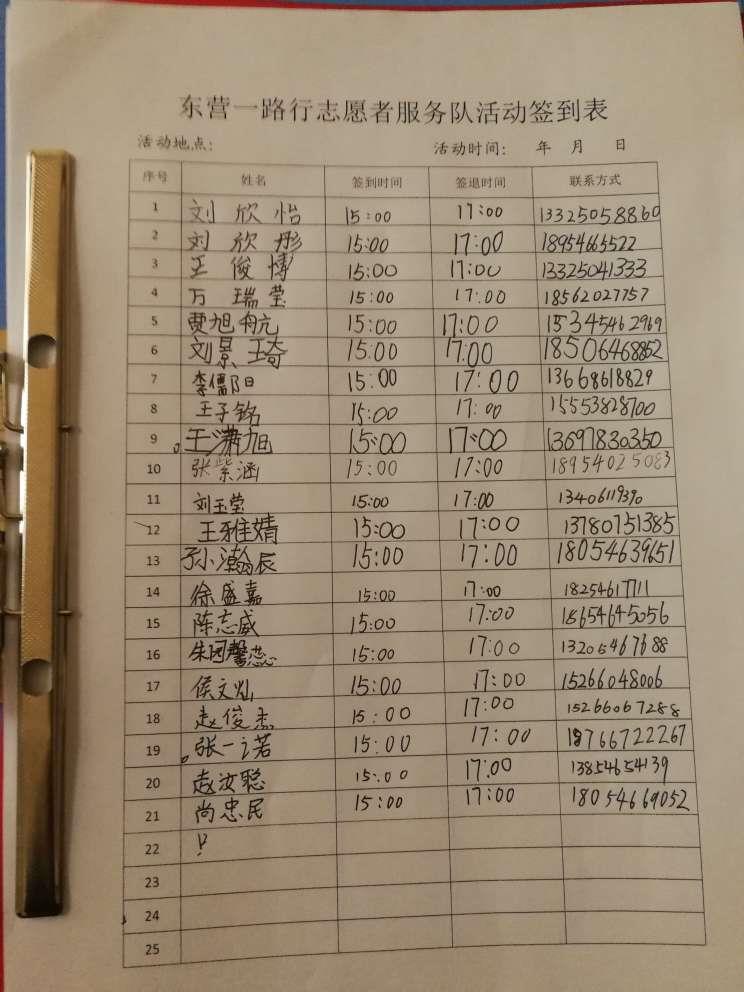 东营一路行志愿者服务队活动签到表
活动地点: 活动时间: 年 月 日
序号 姓名 签到时间 签退时间 联系方式
1 刘欣怡 15:00 17:00 13325058860
2 刘欣彤 15:00 17:00 18954665522
3 王俊博 15:00 17:00 13325041333
4 万瑞莹 15:00 17:00 18562027757
5 贾旭航 15:00 17:00 15345462969
6 刘景琦 15:00 17:00 18506468852
7 李儒阳 15:00 17:00 13668618829
8 王子铭 15:00 17:00 15553828700
9 王潇旭 15:00 17:00 13697830350
10 张紫涵 15:00 17:00 18954025083
11 刘玉莹 15:00 17:00 13406119390
12 王雅婧 15:00 17:00 13780751385
13 孙瀚辰 15:00 17:00 18054639651
14 徐盛嘉 15:00 17:00 18254617711
15 陈志威 15:00 17:00 18654645056
16 朱园馨蕊 15:00 17:00 13205467688
17 侯文灿 15:00 17:00 15266048006
18 赵俊杰 15:00 17:00 15266067288
19 张一诺 15:00 17:00 18766722267
20 赵汝聪 15:00 17:00 13854654139
21 尚忠民 15:00 17:00 18054669052
22
23
24
25